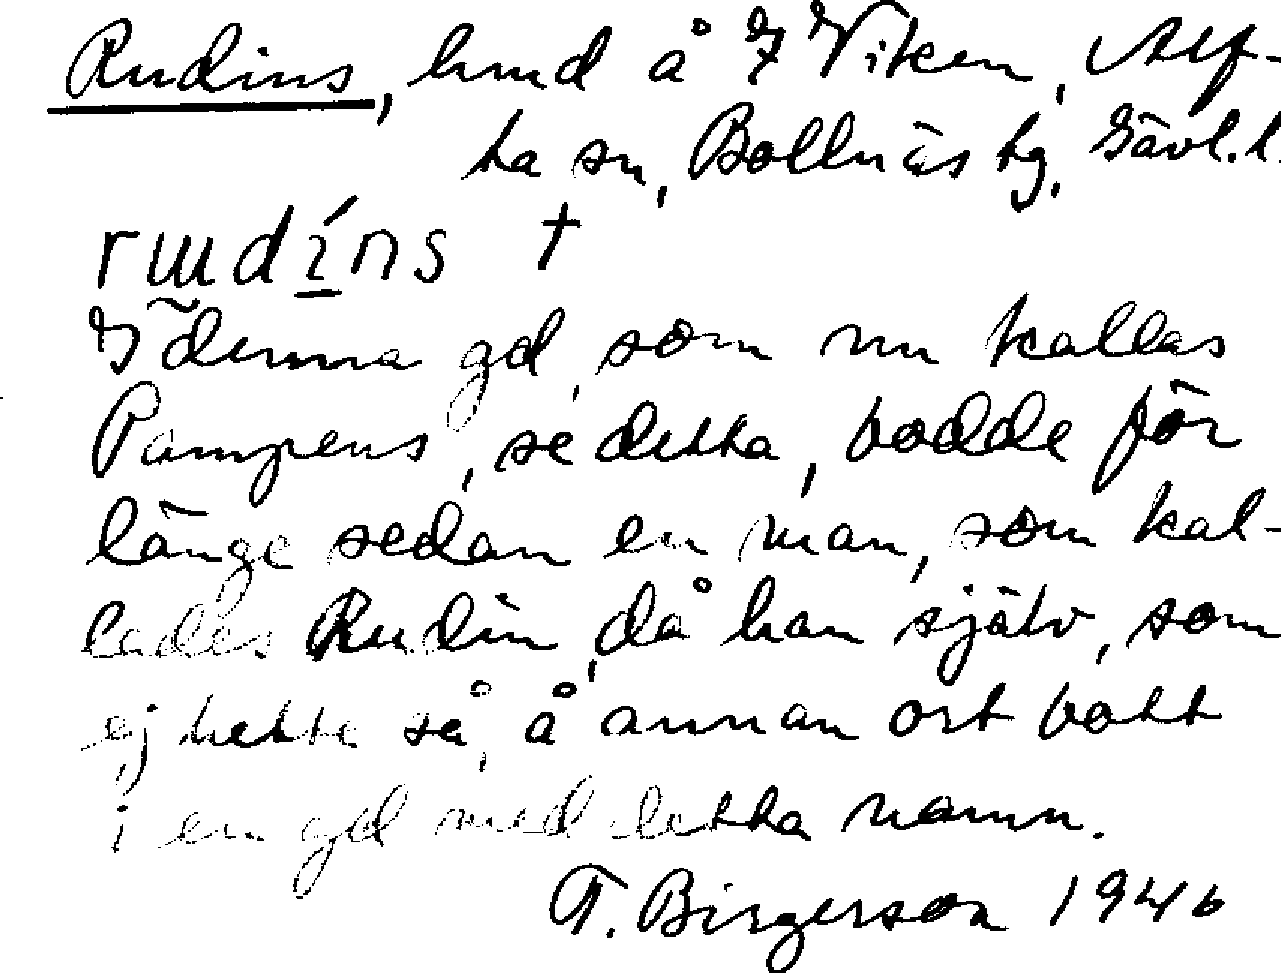 Rudins, hmd å 7 Viken, Alf-
ta sn, Bollnäs tg, Gävl.l.
rɯdíns †
I denna gd, som nu kallas
Pampens, se detta, bodde för
länge sedan en man, som kal-
lades Rudin, då han själv, som
ej hette så, å annan ort bott
i en gd med detta namn.
T. Birgerson 1946